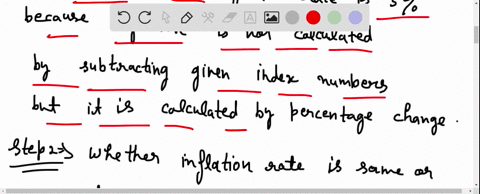 5%
because is not calculated
by subtracting given index numbers
but it is calculated by percentage change.
Step2⇒ whether inflation rate is same or